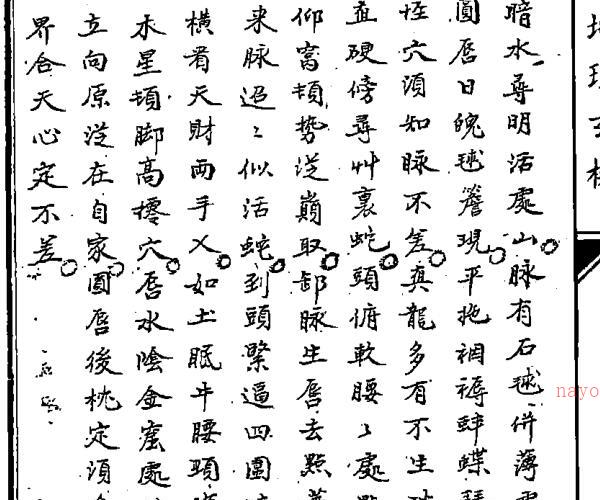 暗水尋明活處山脉有石毬併薄
圓唇日魄毬簷現平拖裀褥蚌蝶
怪穴須知脉不差真龍多有不生
直硬傍尋艸裏蛇頭俯軟腰〻處
仰高頓勢從巔取卸脉生唇去點
来脉迢〻似活蛇到頭緊逼四圍
横看天財两手乂如土眠牛腰頭
木星頓脚高撑穴唇水陰金窟處
立向原從在自家圓唇後枕定須
界合天心定不差
nayo